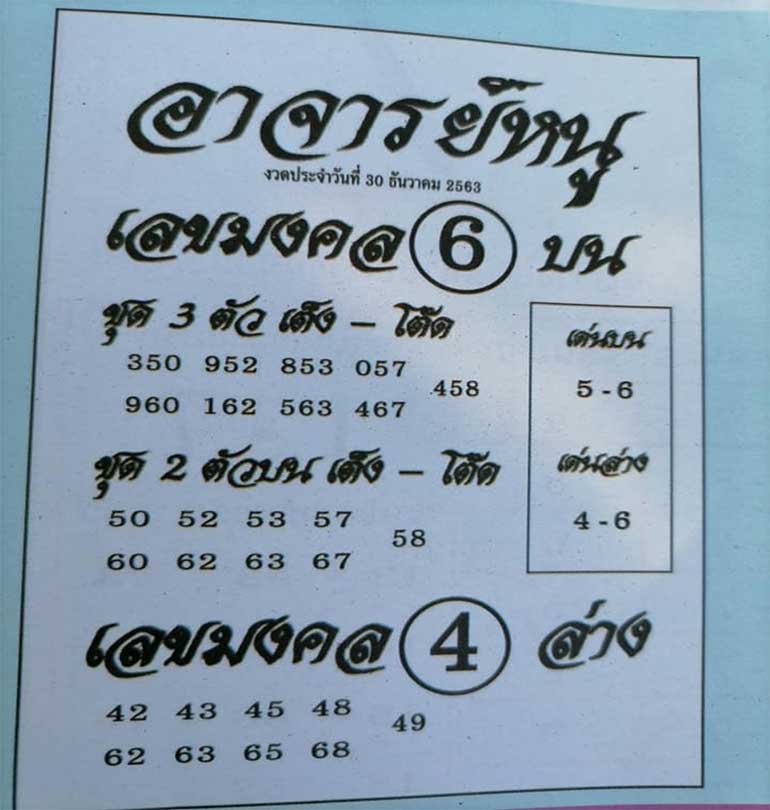 อาจารย์หนู
งวดประจำวันที่ 30 ธันวาคม 2563
เลขมงคล 6 บน
ชุด 3 ตัว เต็ง – โต๊ด
350 952 853 057
458
960 162 563 467
เด่นบน
5 - 6
ชุด 2 ตัวบน เต็ง – โต๊ด
50 52 53 57
58
60 62 63 67
เด่นล่าง
4 - 6
เลขมงคล 4 ล่าง
42 43 45 48
49
62 63 65 68